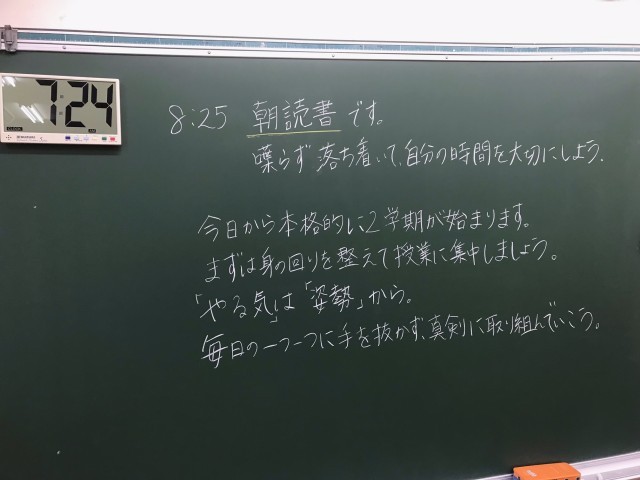 7:24
8:25 朝読書です。
喋らず落ち着いて、自分の時間を大切にしよう.
今日から本格的に2学期が始まります。
まずは身の回りを整えて授業に集中しましょう。
「やる気」は「姿勢」から。
毎日の一つ一つに手を抜かず、真剣に取り組んでいこう。